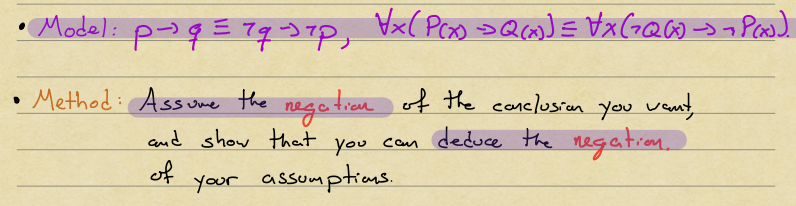 • Model: p → q ≡ ¬q → ¬p, ∀x(P(x) → Q(x)) ≡ ∀x(¬Q(x) → ¬P(x)).
• Method: Assume the negation of the conclusion you want,
and show that you can deduce the negation
of your assumptions.